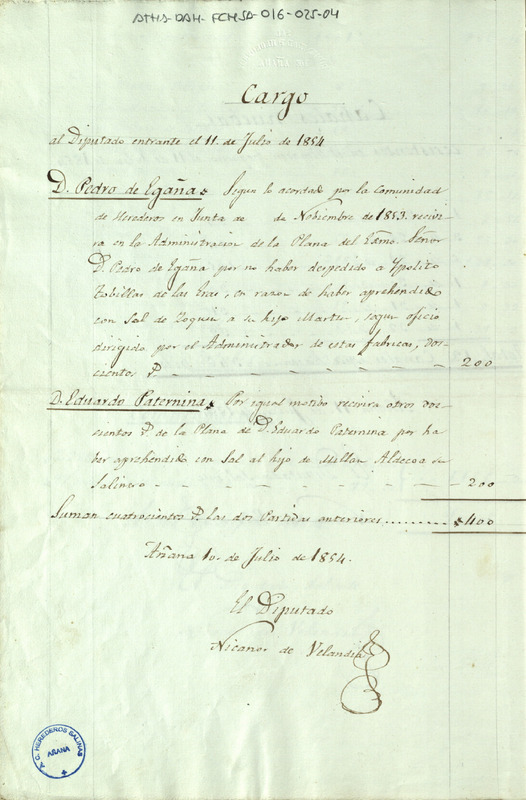 ATHA-DAH-FCHSA-016-025-04
Cargo
al Diputado entrante el 11. de Julio de 1854
D. Pedro de Egaña. Segun lo acordado por la Comunidad
de Herederos en Junta de de Noviembre de 1853. recivi-
ra en la Administracion de la Plana del Exmo. Señor
D. Pedro de Egaña por no haber despedido a Ypolito
Tobillas de las Eras, en razon de haber aprehendido
con Sal de á su hijo Martin, segun oficio
dirigido por el Administrador de estas fabricas, dos-
cientos r.s - - - - - - - 200
D. Eduardo Paternina. Por igual motivo recivira otros dos-
cientos r.s de la Plana de D. Eduardo Paternina por ha-
ber aprehendido con Sal al hijo de Millan Aldecoa su
Salinero - - - - - - - 200
Suman cuatrocientos r.s las dos Partidas anteriores........ 400
Añana 10. de Julio de 1854.
El Diputado
Nicanor de Velandia
C. HEREDEROS SALINAS
AÑANA